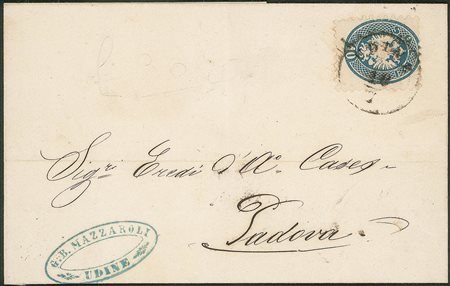 10
UDINE
Sigri. Eredi d'Ao. Cases
Padova
G. B. MAZZAROLI
UDINE